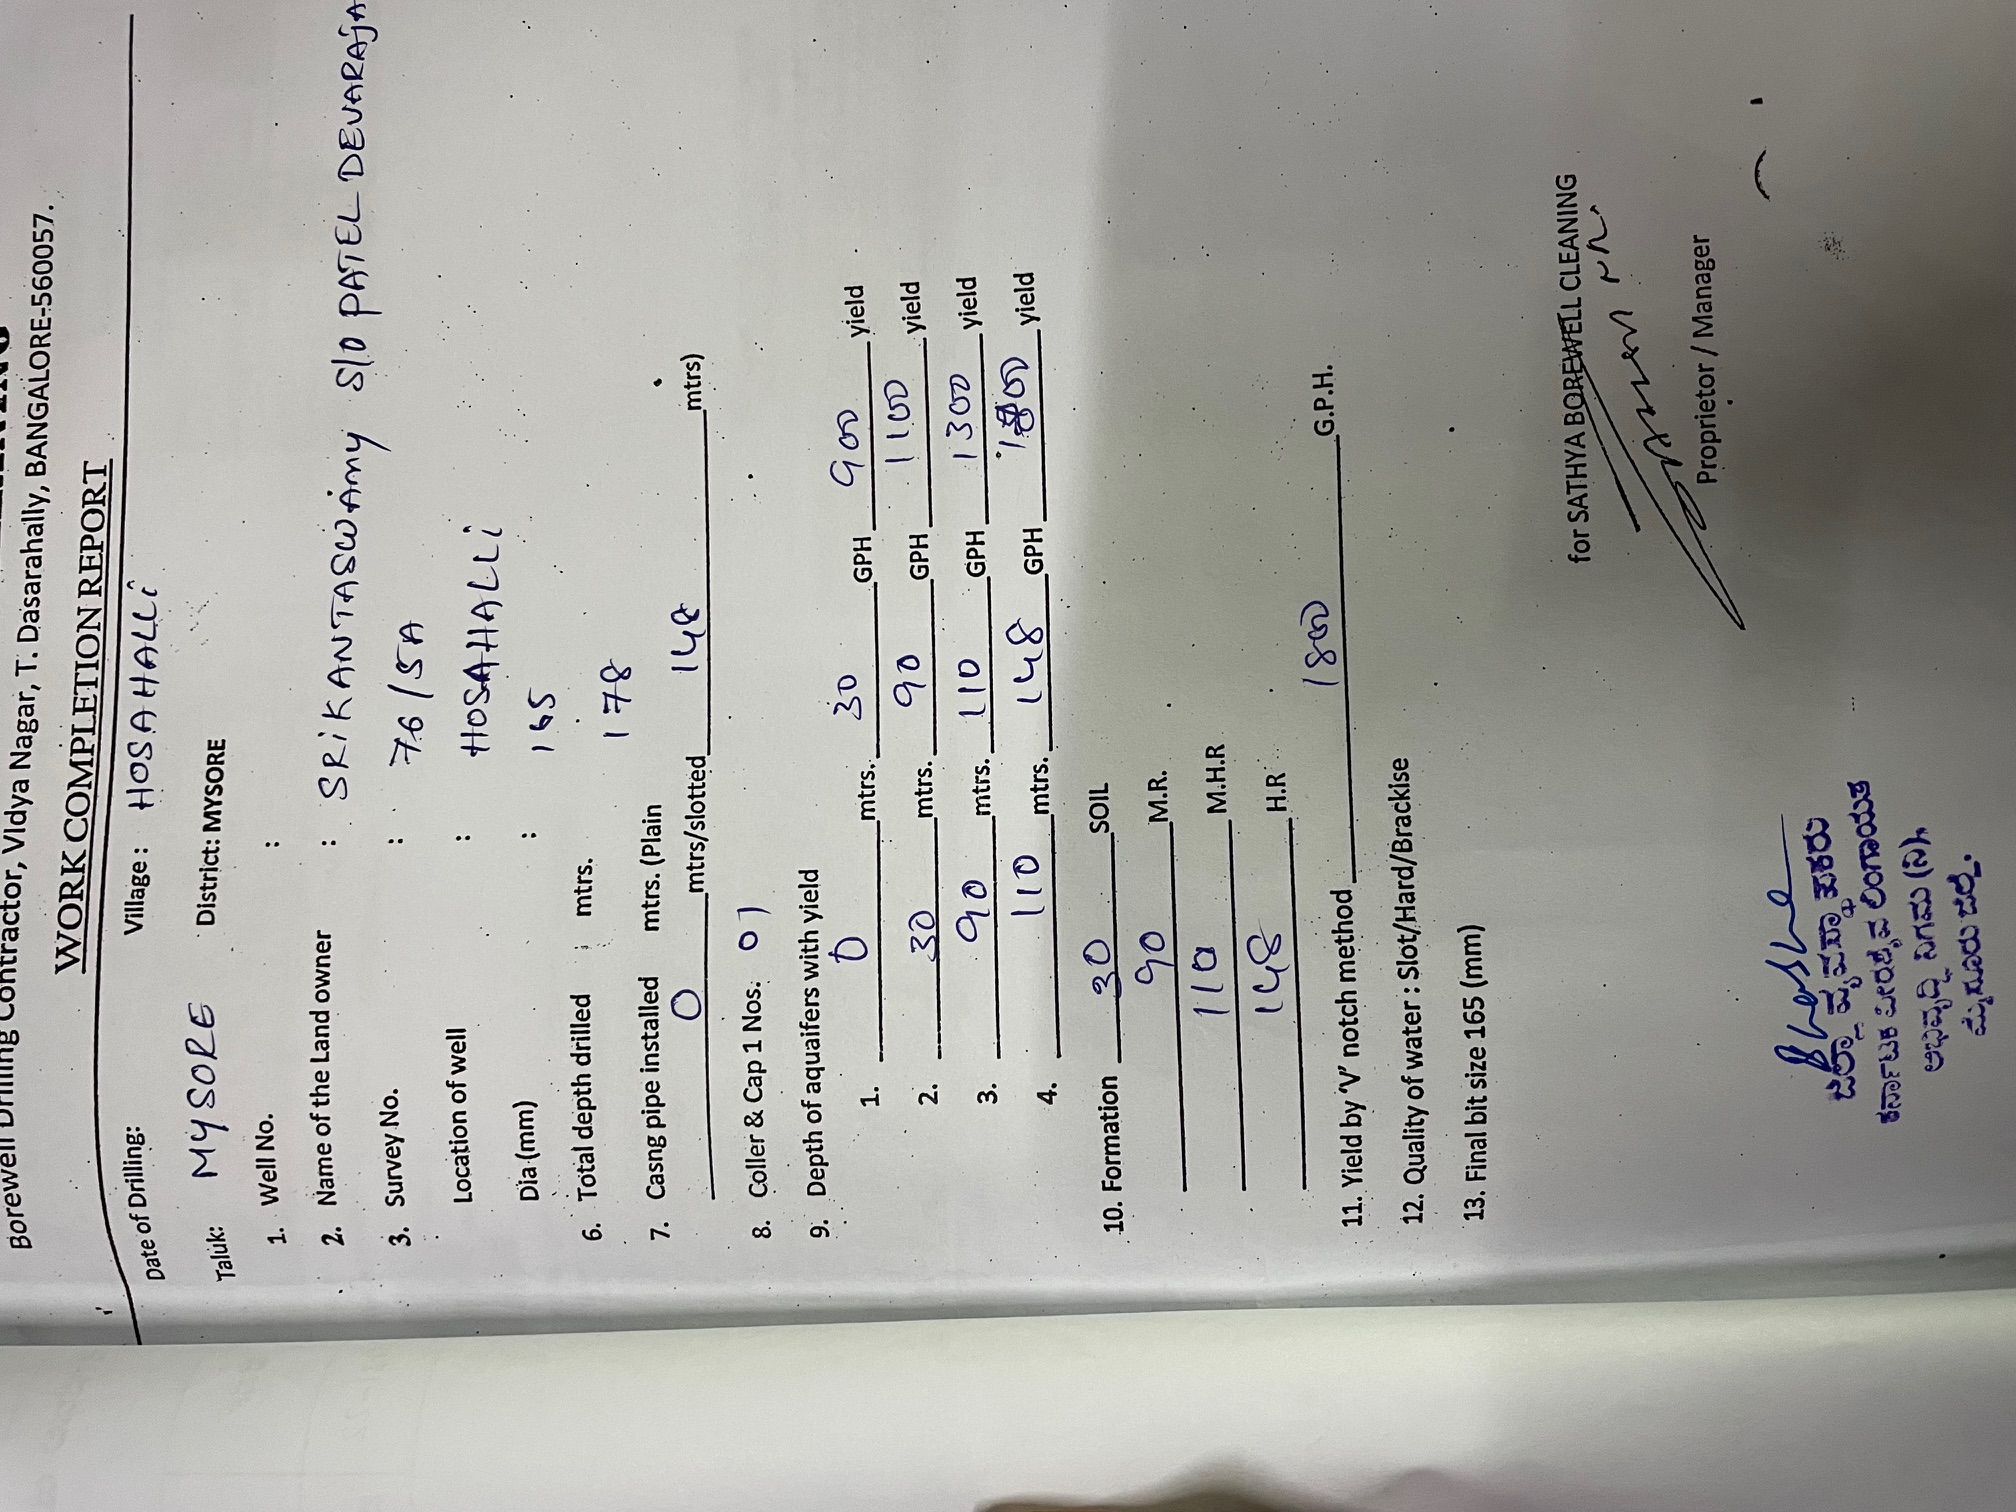 Borewell Drilling Contractor, Vidya Nagar, T. Dasarahally, BANGALORE-560057.
WORK COMPLETION REPORT
Date of Drilling: Village : HOSAHALLi
Taluk: MYSORE District: MYSORE
1. Well No. :
2. Name of the Land owner : SRiKANTASWAmy S/O PATEL DEVARAjA
3. Survey No. : 76/5A
Location of well : HOSAHALLi
Dia (mm) : 165
6. Total depth drilled mtrs. 178
7. Casng pipe installed mtrs. (Plain
0 mtrs/slotted 148 mtrs)
8. Coller & Cap 1 Nos. 01
9. Depth of aquaifers with yield
1. 0 mtrs. 30 GPH 900 yield
2. 30 mtrs. 90 GPH 1100 yield
3. 90 mtrs. 110 GPH 1300 yield
4. 110 mtrs. 148 GPH 1800 yield
10. Formation 30 SOIL
90 M.R.
110 M.H.R
148 H.R
11. Yield by 'V' notch method 1800 G.P.H.
12. Quality of water : Slot/Hard/Brackise
13. Final bit size 165 (mm)
for SATHYA BOREWELL CLEANING
Proprietor / Manager
ಜಿಲ್ಲಾ ವ್ಯವಸ್ಥಾಪಕರು
ಕರ್ನಾಟಕ ವೀರಶೈವ ಲಿಂಗಾಯತ
ಅಭಿವೃದ್ಧಿ ನಿಗಮ (ನಿ),
ಮೈಸೂರು ಜಿಲ್ಲೆ.